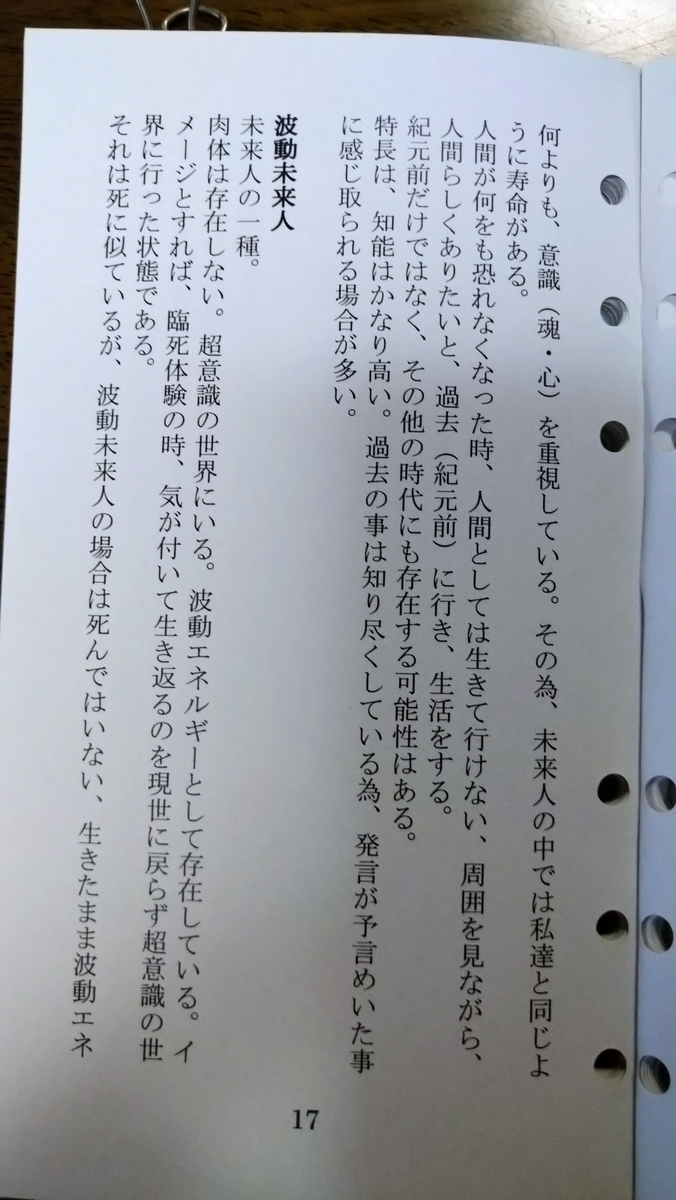 何よりも、意識（魂・心）を重視している。その為、未来人の中では私達と同じよ
うに寿命がある。
人間が何をも恐れなくなった時、人間としては生きて行けない、周囲を見ながら、
人間らしくありたいと、過去（紀元前）に行き、生活をする。
紀元前だけではなく、その他の時代にも存在する可能性はある。
特長は、知能はかなり高い。過去の事は知り尽くしている為、発言が予言めいた事
に感じ取られる場合が多い。
波動未来人
未来人の一種。
肉体は存在しない。超意識の世界にいる。波動エネルギーとして存在している。イ
メージとすれば、臨死体験の時、気が付いて生き返るのを現世に戻らず超意識の世
界に行った状態である。
それは死に似ているが、波動未来人の場合は死んではいない、生きたまま波動エネ
17